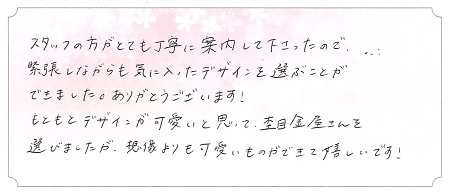 スタッフの方がとても丁寧に案内して下さったので、
緊張しながらも気に入ったデザインを選ぶことが
できました。ありがとうございます！
もともとデザインが可愛いと思って、杢目金屋さんを
選びましたが、想像よりも可愛いものができて嬉しいです！